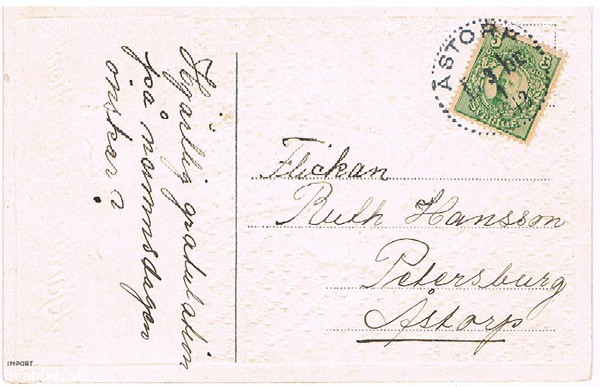 Hjärtlig gratulation
på namnsdagen
önskar?
Flickan
Ruth Hansson
Petersburg
Åstorp
ÅSTORP
5 5
SVERIGE
IMPORT